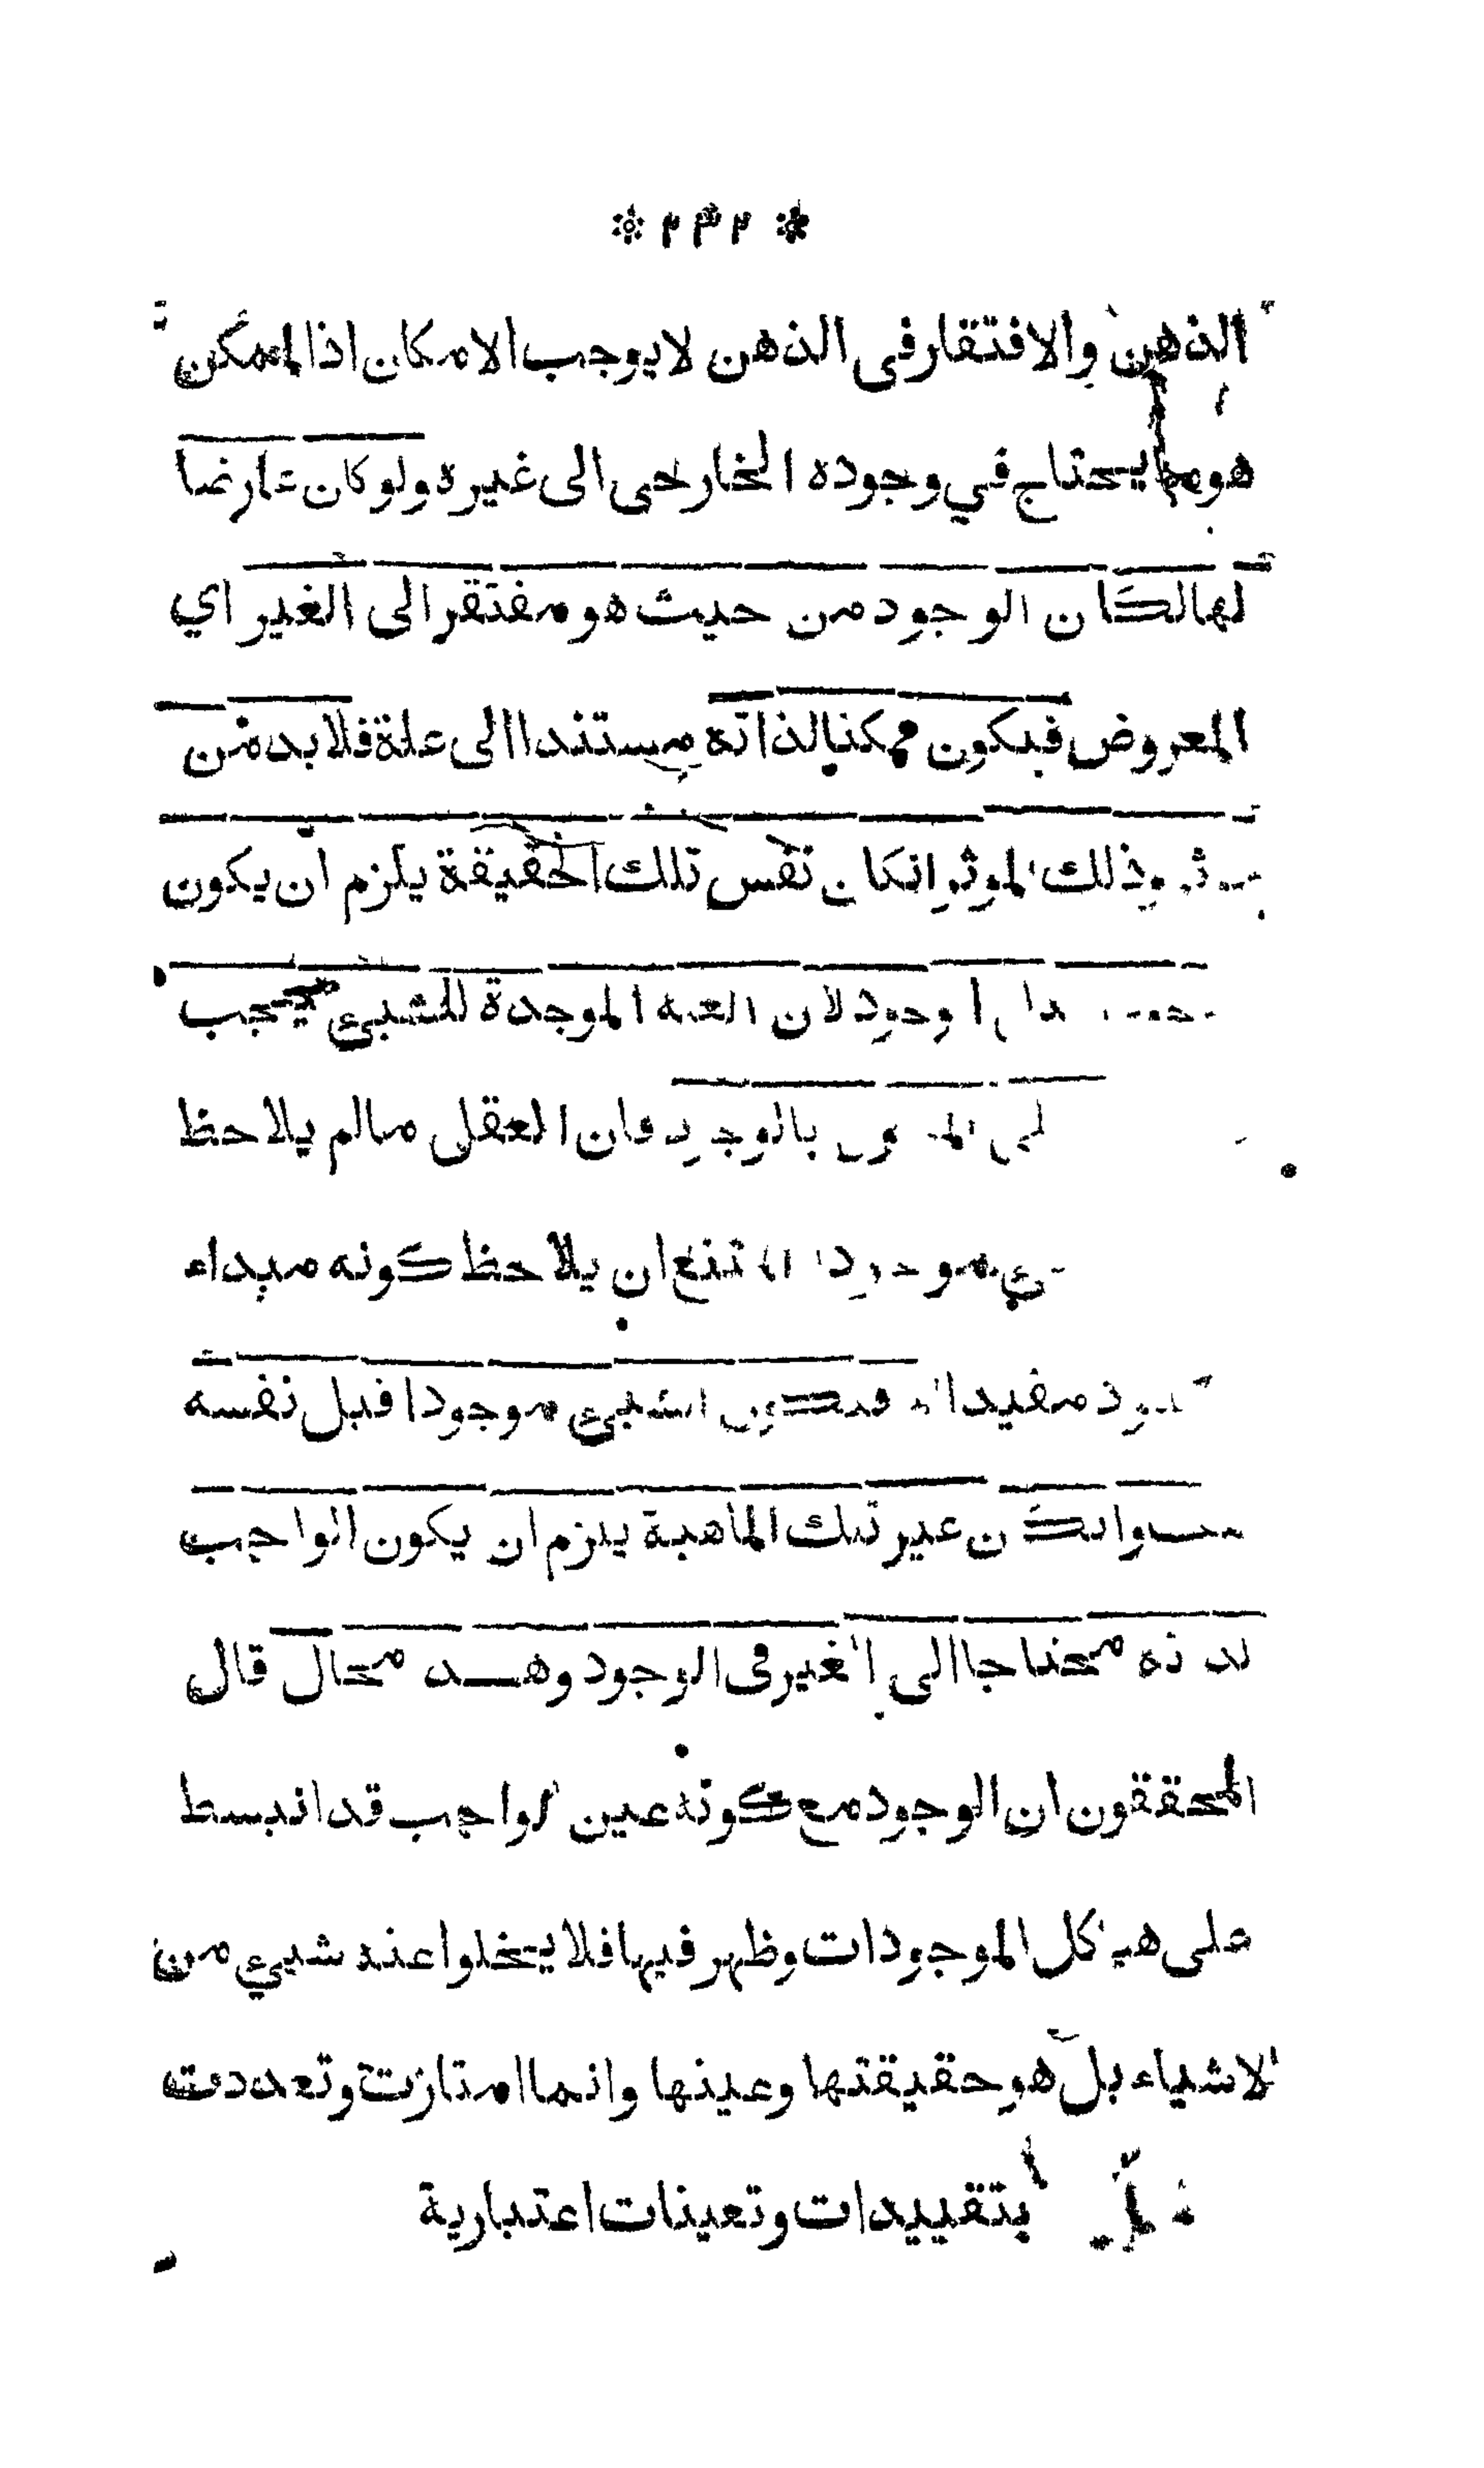 * ٢٣٢ *
الذهن والافتقار فى الذهن لا يوجب الامكان اذا الممكن
هو ما يحتاج في وجوده الخارجى الى غيره ولو كان عارضا
لها لكان الوجود من حيث هو مفتقر الى الغير اي
المعروض فيكون ممكنا لذاته مستندا الى علة فلا بد من
وذلك الموثر انكان نفس تلك الحقيقة يلزم ان يكون
لان الموجدة للشيئ يجب
بالوجود فان العقل مالم يلاحظ
ان يلاحظ كونه مبداء
مفيدا الشيئ موجودا قبل نفسه
غير تلك الماهية يلزم ان يكون الواجب
محتاجا الى الغير فى الوجود وهــذ محال قال
المحققون ان الوجود مع كونه عين الواجب قد انبسط
على هياكل الموجودات وظهر فيها فلا يخلوا عنه شيئ من
الاشياء بل هو حقيقتها وعينها وانما امتازت وتعددت
بتقييدات وتعينات اعتبارية